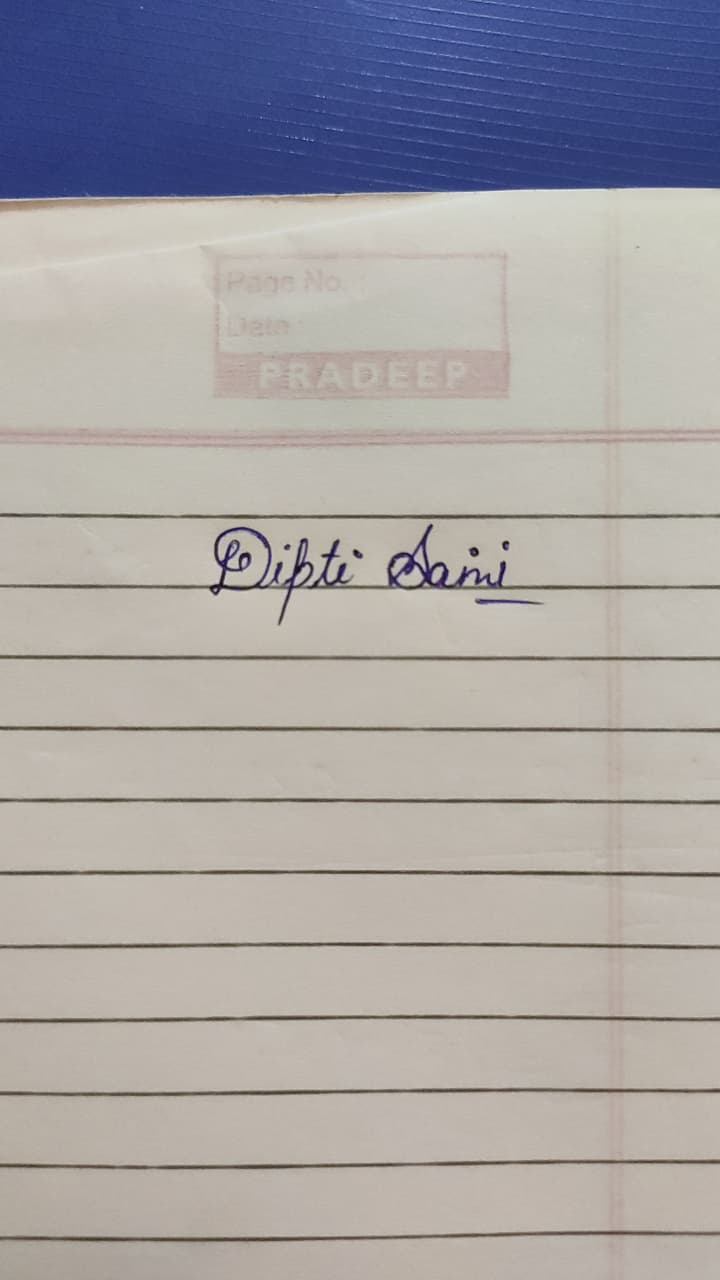 Page No. :
Date :
PRADEEP
Dipti Saini